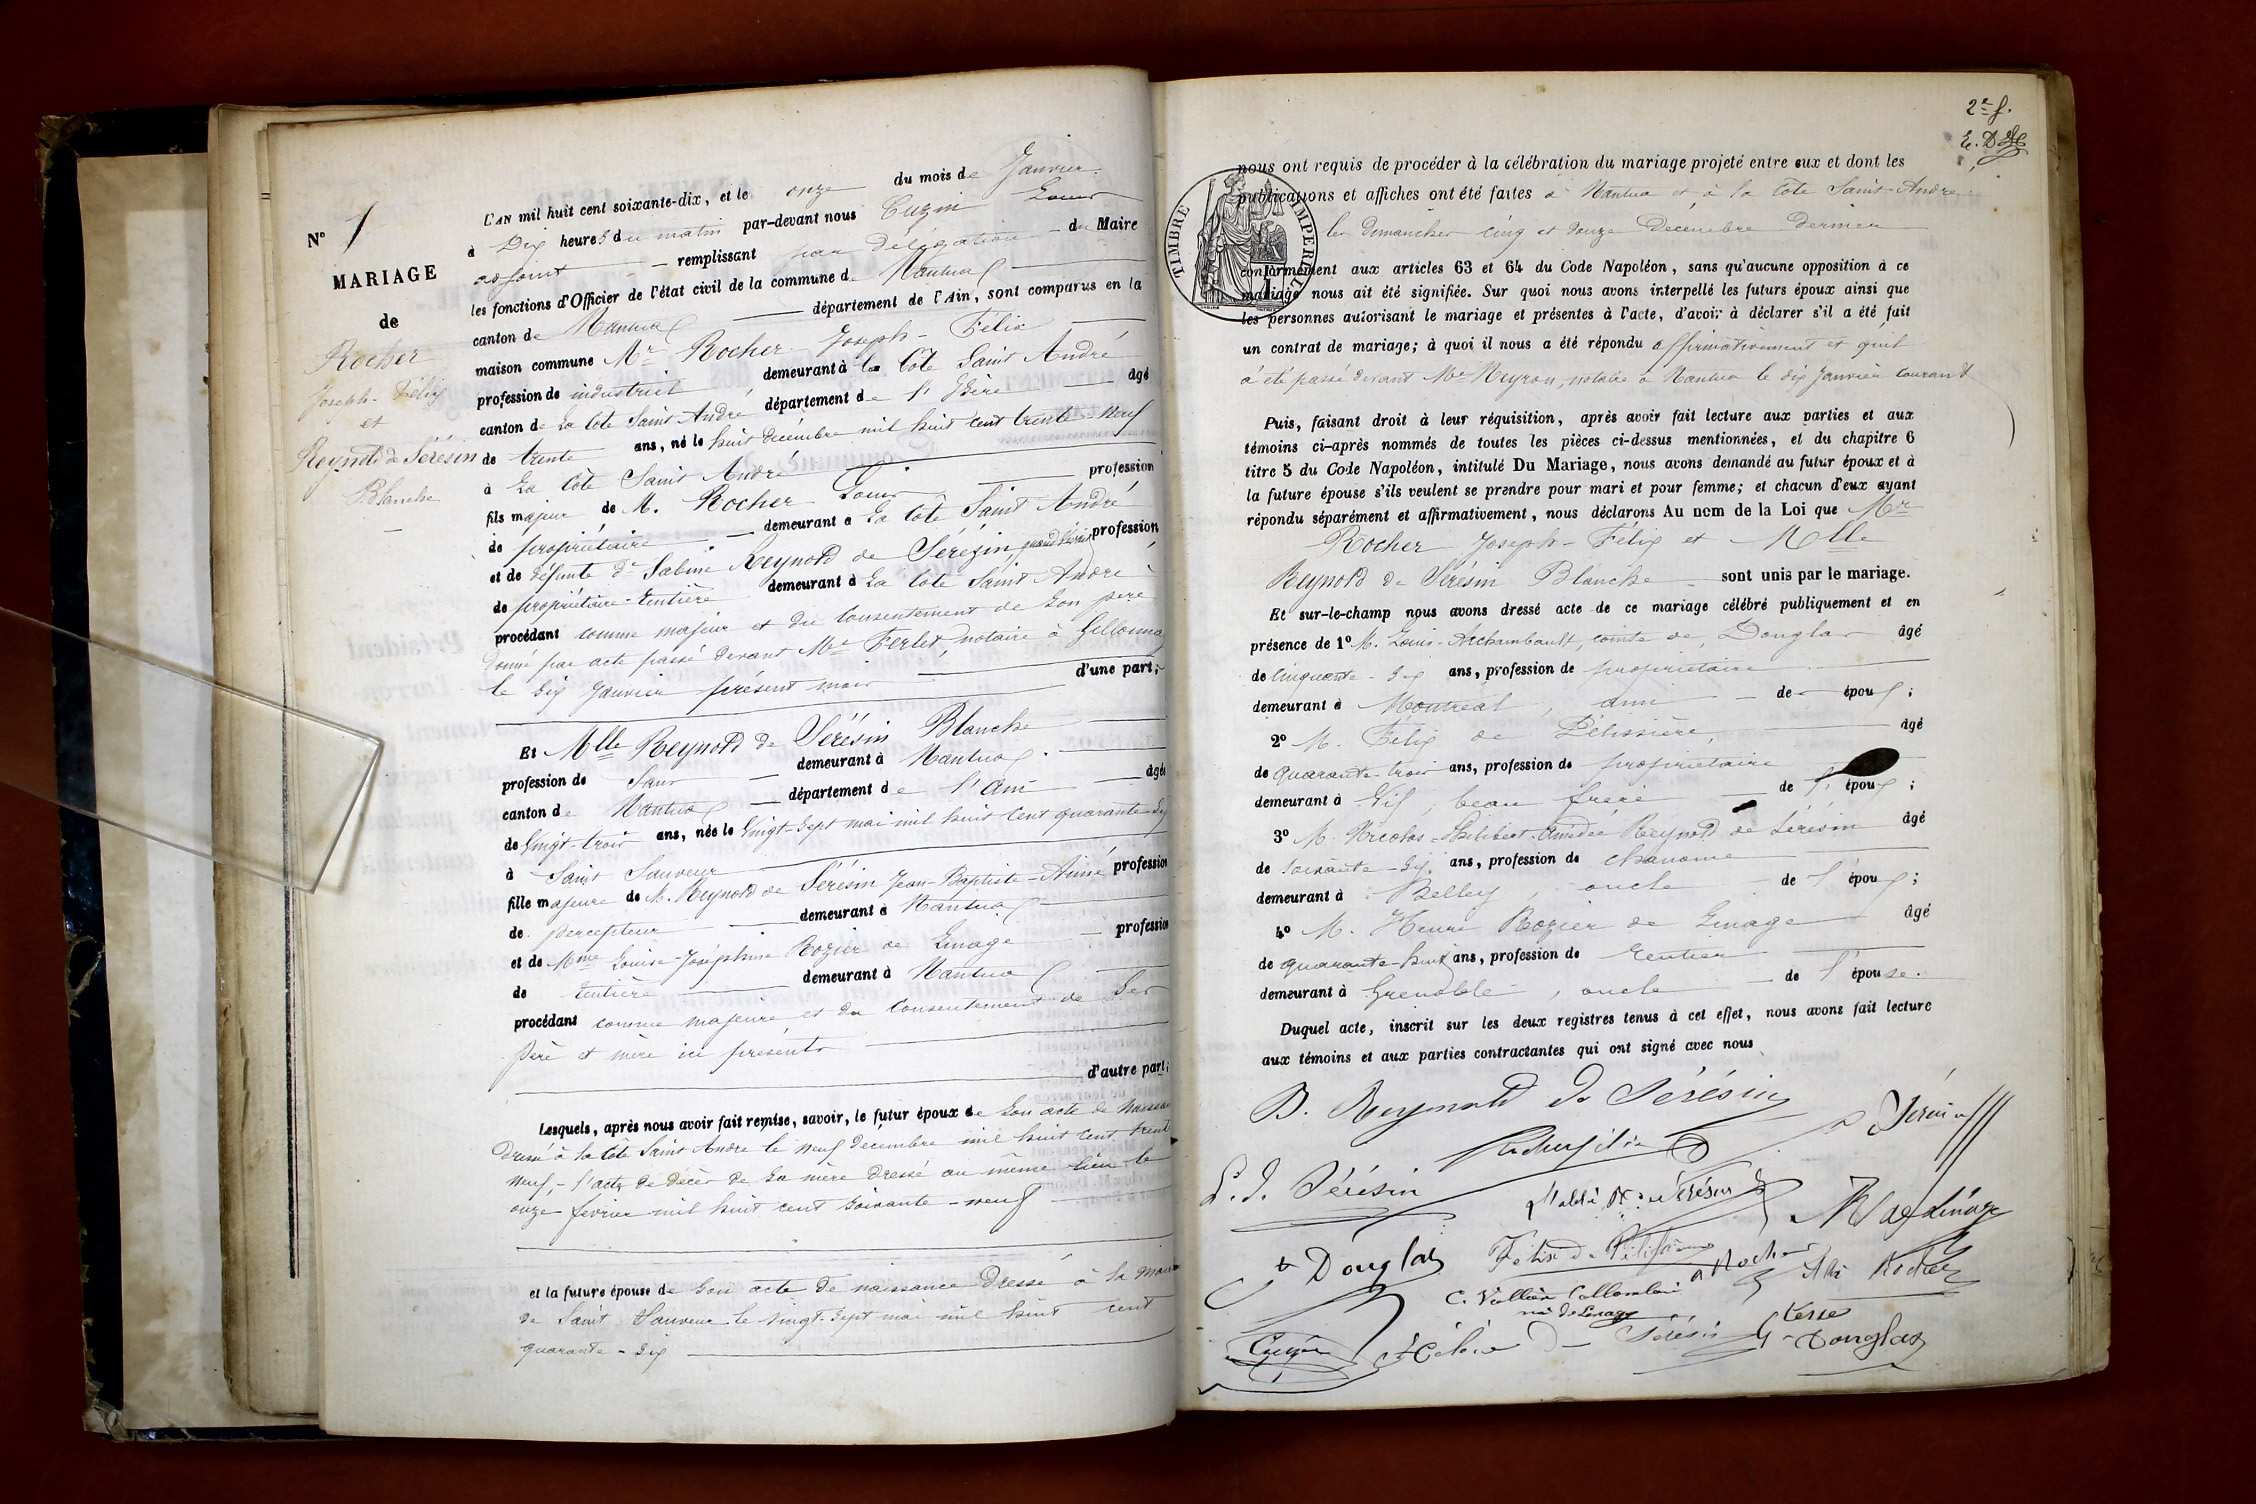 N° 1
MARIAGE
de
Rocher
Joseph-Félix
et
Reynold de Sérésin
Blanche
L'AN mil huit cent soixante-dix, et le onze du mois de Janvier
à Dix heures du matin par-devant nous Cuzin Louis
adjoint remplissant par délégation du Maire
les fonctions d'Officier de l'état civil de la commune de Nantua
canton de Nantua département de l'Ain, sont comparus en la
maison commune Mr Rocher Joseph-Félix
profession de industriel demeurant à la Côte Saint André
canton de La Côte Saint André département de l'Isère âgé
de trente ans, né le huit décembre mil huit cent trente neuf
à La Côte Saint André
fils majeur de M. Rocher Louis profession
de propriétaire demeurant à La Côte Saint André
et de défunte De Sabine Reynold de Sérézin, quand vivait profession
de propriétaire-rentière demeurant à La Côte Saint André
procédant comme majeur et du consentement de son père
donné par acte passé devant Me Ferlet, notaire à Gillonnay
le dix Janvier présent mois d'une part;
Et Mlle Reynold de Sérésin Blanche
profession de Sans demeurant à Nantua
canton de Nantua département de l'Ain âgée
de Vingt-trois ans, née le Vingt-sept mai mil huit cent quarante-six
à Saint Sauveur
fille majeure de M. Reynold de Sérésin Jean-Baptiste-Aimé profession
de percepteur demeurant à Nantua
et de Mme Louise-Joséphine Rozier de Linage profession
de rentière demeurant à Nantua
procédant comme majeure et du consentement de ses
père et mère ici présents
d'autre part;
Lesquels, après nous avoir fait remise, savoir, le futur époux de son acte de naissance
dressé à la Côte Saint André le neuf décembre mil huit cent trente
neuf, - l'acte de décès de sa mère dressé au même lieu le
onze février mil huit cent soixante-neuf
et la future épouse de son acte de naissance dressé à la Mairie
de Saint Sauveur le vingt-sept mai mil huit cent
quarante-six
2e f.
nous ont requis de procéder à la célébration du mariage projeté entre eux et dont les
publications et affiches ont été faites à Nantua et à la Côte Saint-André
les Dimanches cinq et douze Décembre dernier
TIMBRE IMPERIAL
conformément aux articles 63 et 64 du Code Napoléon, sans qu'aucune opposition à ce
mariage nous ait été signifiée. Sur quoi nous avons interpellé les futurs époux ainsi que
les personnes autorisant le mariage et présentes à l'acte, d'avoir à déclarer s'il a été fait
un contrat de mariage; à quoi il nous a été répondu affirmativement et qu'il
a été passé devant Me Neyron, notaire à Nantua le dix Janvier courant
Puis, faisant droit à leur réquisition, après avoir fait lecture aux parties et aux
témoins ci-après nommés de toutes les pièces ci-dessus mentionnées, et du chapitre 6
titre 5 du Code Napoléon, intitulé Du Mariage, nous avons demandé au futur époux et à
la future épouse s'ils veulent se prendre pour mari et pour femme; et chacun d'eux ayant
répondu séparément et affirmativement, nous déclarons Au nom de la Loi que Mr
Rocher Joseph-Félix et Mlle
Reynold de Sérésin Blanche sont unis par le mariage.
Et sur-le-champ nous avons dressé acte de ce mariage célébré publiquement et en
présence de 1° M. Louis-Archambault, comte de Douglas âgé
de Cinquante-six ans, profession de propriétaire
demeurant à Montréal, ami de époux;
2° M. Félix de Pélissière, âgé
de quarante-trois ans, profession de propriétaire
demeurant à Gif, beau frère de l'époux;
3° M. Nicolas-Philibert-Amédée Reynold de Sérésin âgé
de soixante-six ans, profession de chanoine
demeurant à Belley oncle de l'époux;
4° M. Henri Rozier de Linage âgé
de quarante-huit ans, profession de rentier
demeurant à Grenoble, oncle de l'épouse.
Duquel acte, inscrit sur les deux registres tenus à cet effet, nous avons fait lecture
aux témoins et aux parties contractantes qui ont signé avec nous
B. Reynold de Sérésin
L. J. Sérésin
l'abbé de Sérésin
de Linage
Douglas
Félix de Pélissière
A Rocher
C. Vallier Collombier
née de Linage
Rocher
Cuzin
de Sérésin
Ctesse
Douglas